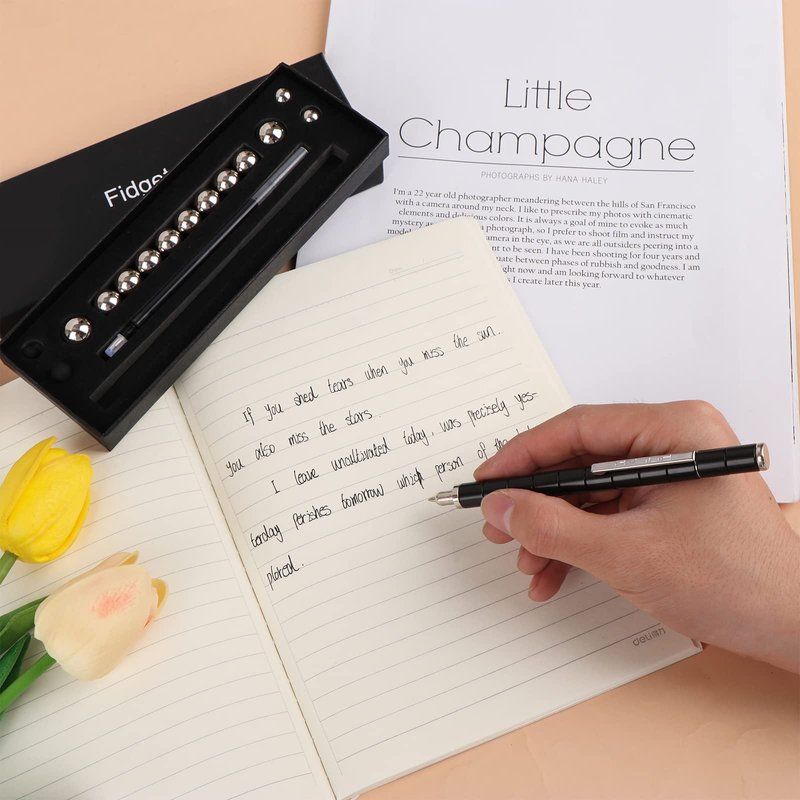 Fidget
Little
Champagne
PHOTOGRAPHS BY HANA HALEY
I'm a 22 year old photographer meandering between the hills of San Francisco
with a camera around my neck. I like to prescribe my photos with cinematic
elements and delicious colors. It is always a goal of mine to evoke as much
mystery as a photograph, so I prefer to shoot film and instruct my
camera in the eye, as we are all outsiders peering into a
nt to be seen. I have been shooting for four years and
between phases of rubbish and goodness. I am
right now and am looking forward to whatever
I create later this year.
If you shed tears when you miss the sun.
you also miss the stars.
I leave unaltivated today, was precisely yes-
terday perishes tomorrow which person of the
plored.
deli得力